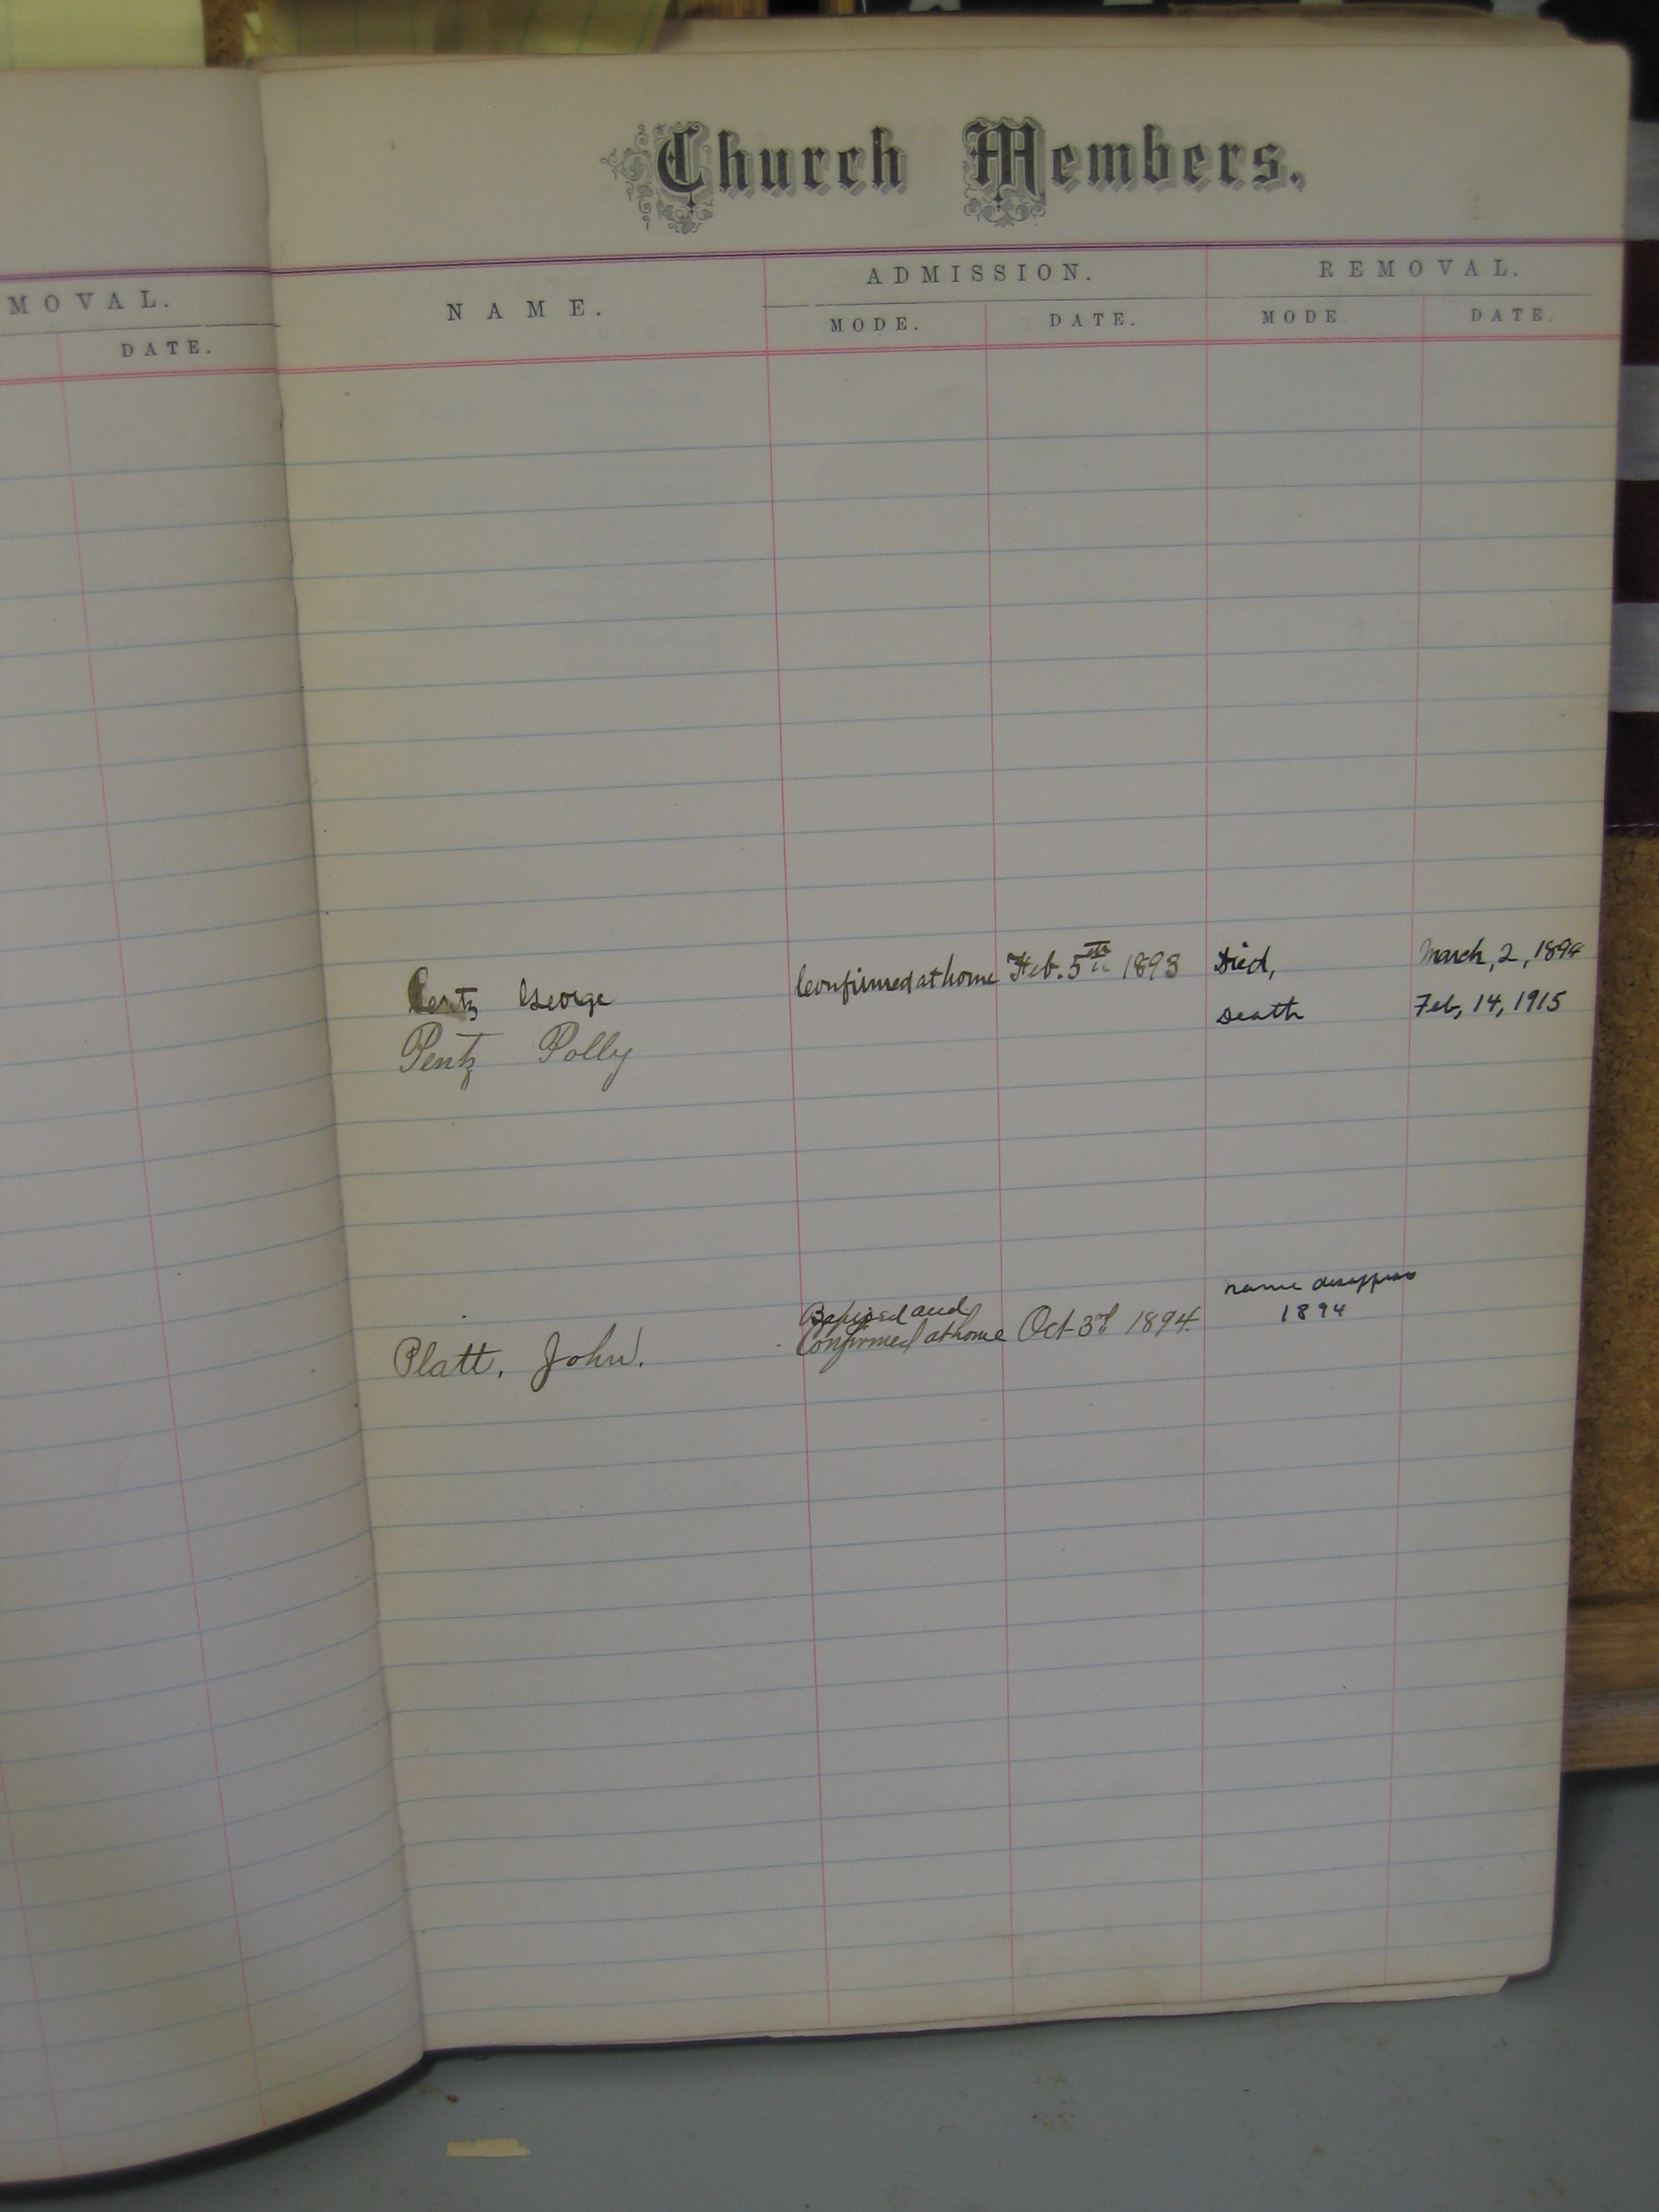 MOVAL.
DATE.
Church Members.
NAME.
ADMISSION.
REMOVAL.
MODE.
DATE.
MODE
DATE.
Pentz George
Confirmed at home
Feb. 5th 1893
Died,
March, 2, 1894
Death
Feb, 14, 1915
Pentz Polly
Platt, John.
Baptized and
Confirmed at home
Oct 3rd 1894
name disappears
1894